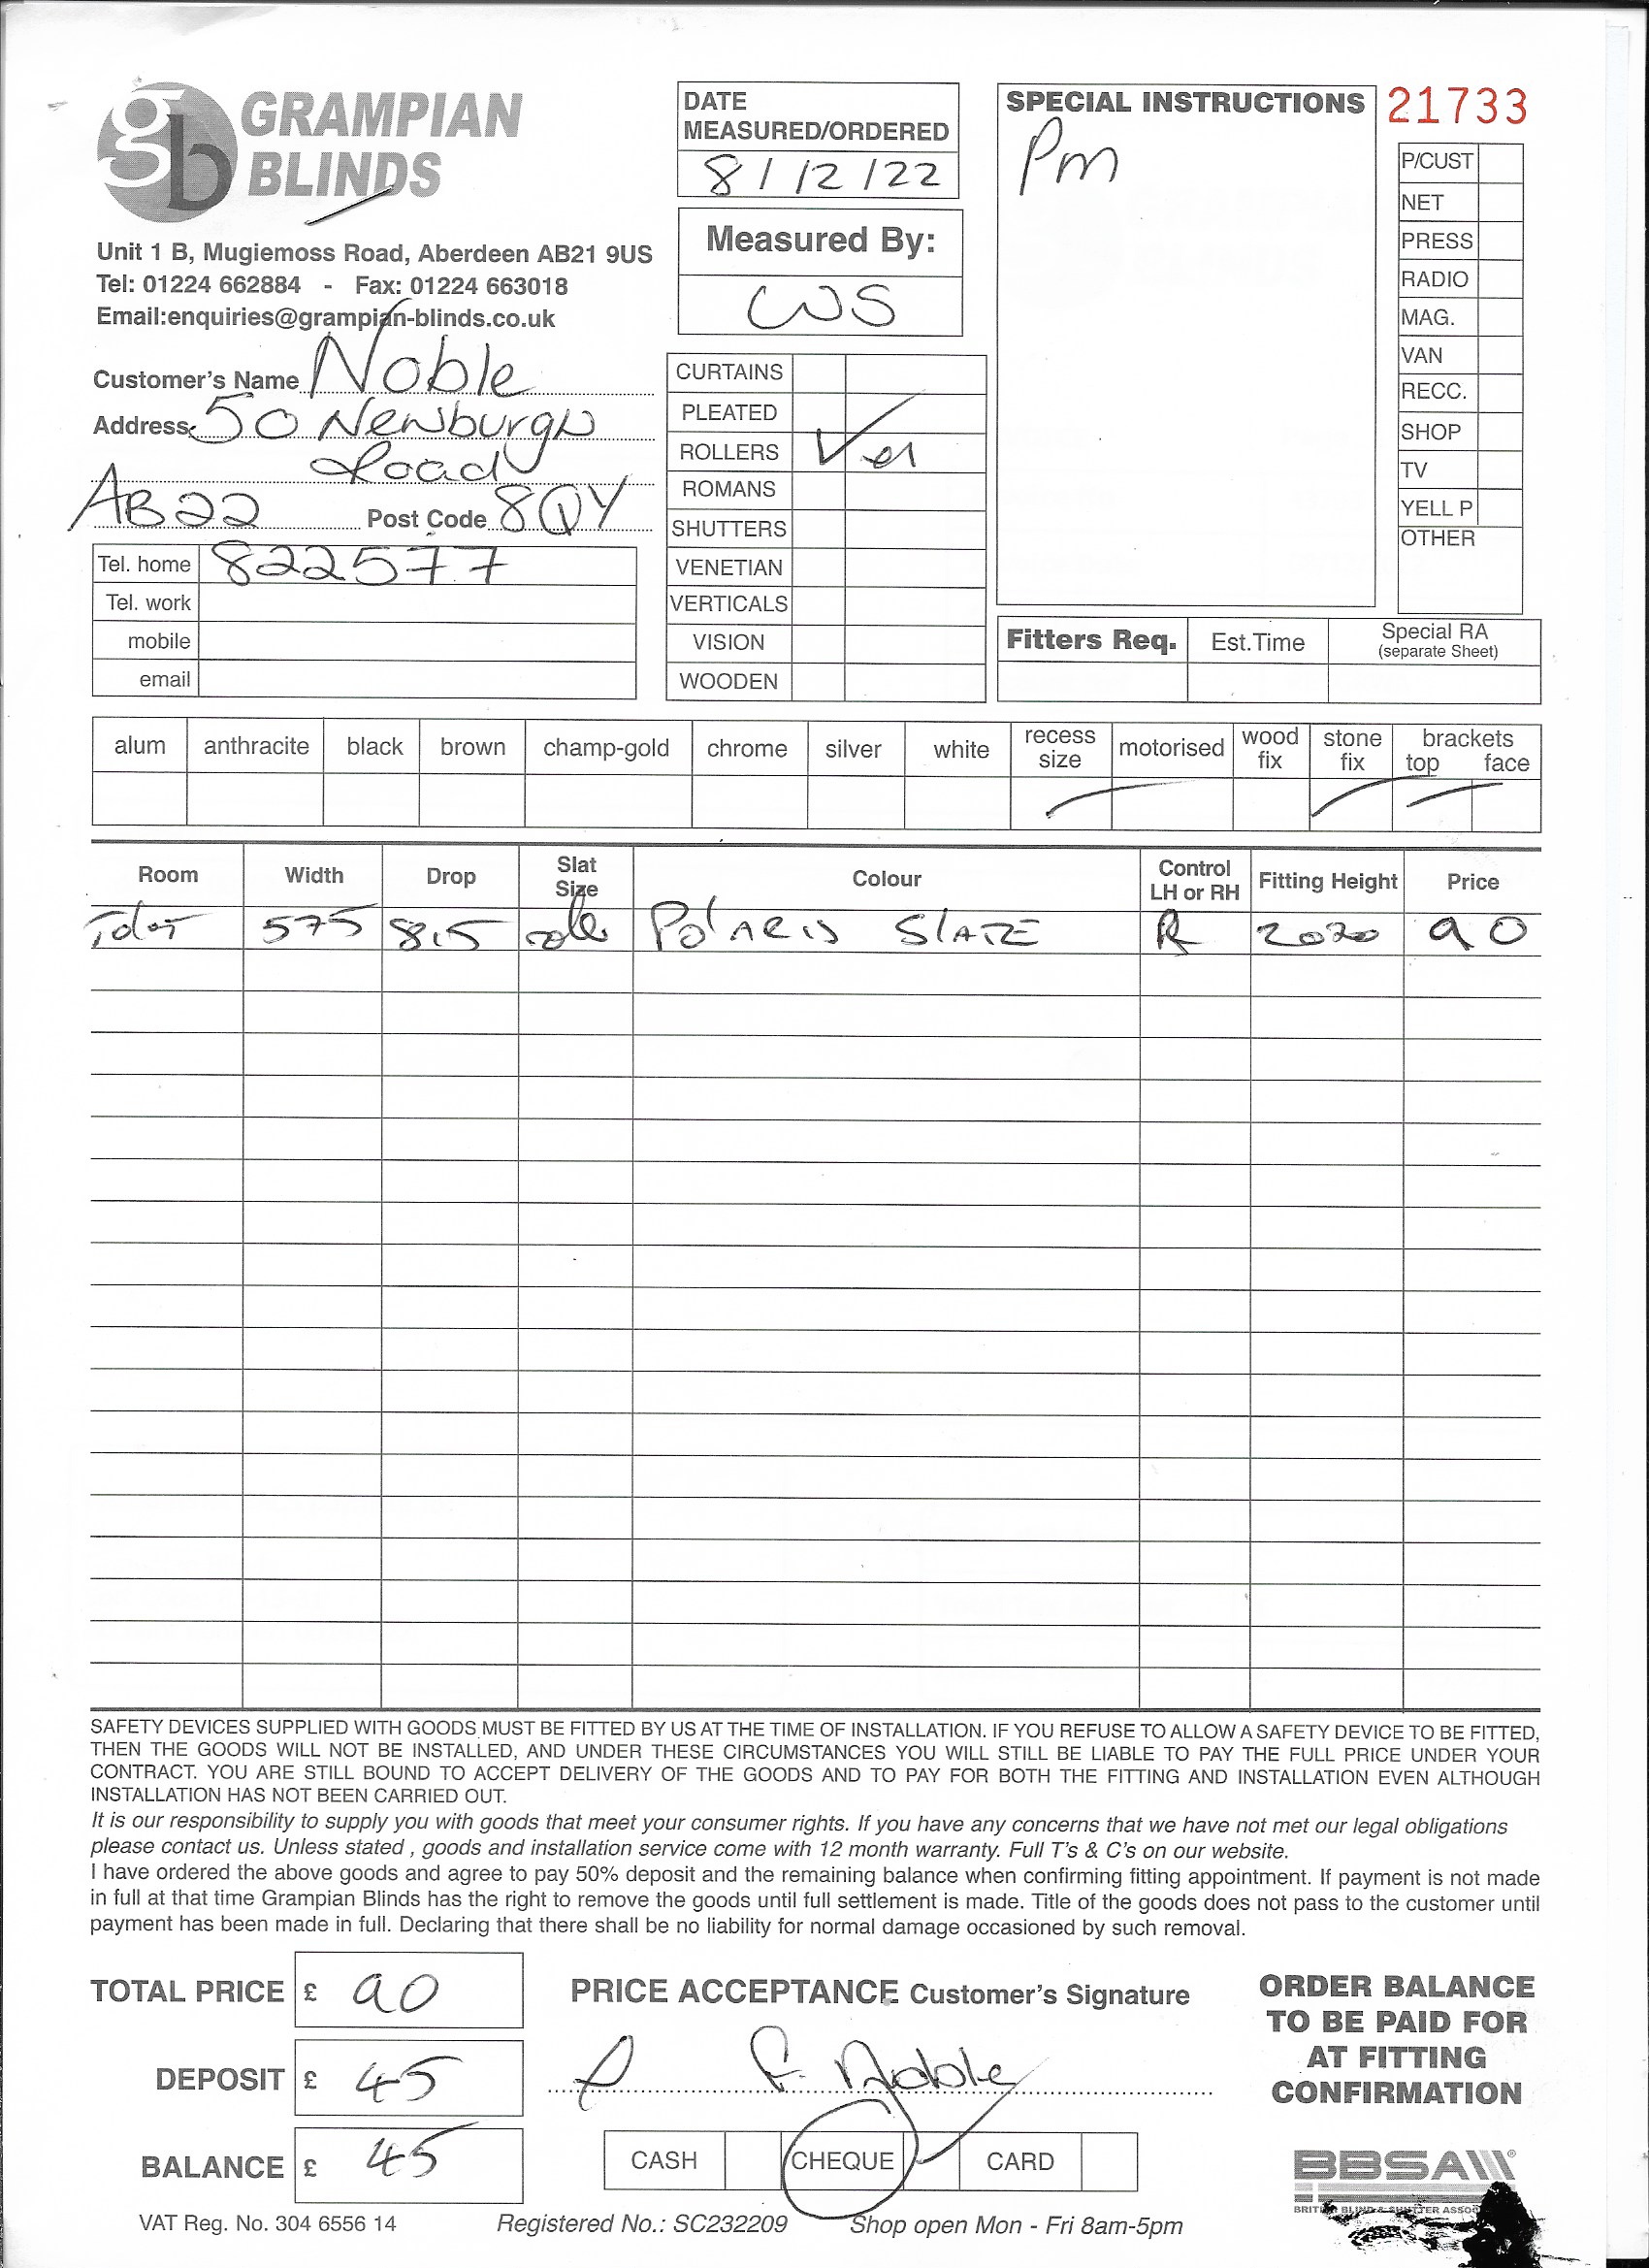 gb GRAMPIAN
BLINDS
Unit 1 B, Mugiemoss Road, Aberdeen AB21 9US
Tel: 01224 662884 - Fax: 01224 663018
Email:enquiries@grampian-blinds.co.uk
DATE
MEASURED/ORDERED
8/12/22
Measured By:
WS
SPECIAL INSTRUCTIONS
Pm
21733
P/CUST
NET
PRESS
RADIO
MAG.
VAN
RECC.
SHOP
TV
YELL P
OTHER
Customer's Name Noble
Address 50 Newburgh
Road
AB22 Post Code 8QY
Tel. home 822577
Tel. work
mobile
email
CURTAINS
PLEATED
ROLLERS
ROMANS
SHUTTERS
VENETIAN
VERTICALS
VISION
WOODEN
Fitters Req. Est.Time Special RA
(separate Sheet)
alum anthracite black brown champ-gold chrome silver white recess size motorised wood fix stone fix brackets top face
Room Width Drop Slat Size Colour Control LH or RH Fitting Height Price
575 815 Polaris SLATE R 2020 90
SAFETY DEVICES SUPPLIED WITH GOODS MUST BE FITTED BY US AT THE TIME OF INSTALLATION. IF YOU REFUSE TO ALLOW A SAFETY DEVICE TO BE FITTED,
THEN THE GOODS WILL NOT BE INSTALLED, AND UNDER THESE CIRCUMSTANCES YOU WILL STILL BE LIABLE TO PAY THE FULL PRICE UNDER YOUR
CONTRACT. YOU ARE STILL BOUND TO ACCEPT DELIVERY OF THE GOODS AND TO PAY FOR BOTH THE FITTING AND INSTALLATION EVEN ALTHOUGH
INSTALLATION HAS NOT BEEN CARRIED OUT.
It is our responsibility to supply you with goods that meet your consumer rights. If you have any concerns that we have not met our legal obligations
please contact us. Unless stated , goods and installation service come with 12 month warranty. Full T's & C's on our website.
I have ordered the above goods and agree to pay 50% deposit and the remaining balance when confirming fitting appointment. If payment is not made
in full at that time Grampian Blinds has the right to remove the goods until full settlement is made. Title of the goods does not pass to the customer until
payment has been made in full. Declaring that there shall be no liability for normal damage occasioned by such removal.
TOTAL PRICE £ 90
DEPOSIT £ 45
BALANCE £ 45
PRICE ACCEPTANCE Customer's Signature
Noble
CASH CHEQUE CARD
ORDER BALANCE
TO BE PAID FOR
AT FITTING
CONFIRMATION
BBSA
VAT Reg. No. 304 6556 14 Registered No.: SC232209 Shop open Mon - Fri 8am-5pm